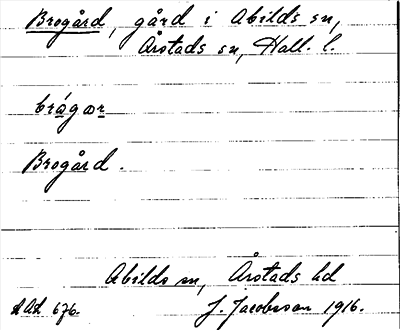 Brogård, gård i Abilds sn,
Årstads sn, Hall. l.
brágær
Brogård.
Abilds sn, Årstads hd
AAd 676. J. Jacobsson 1916.